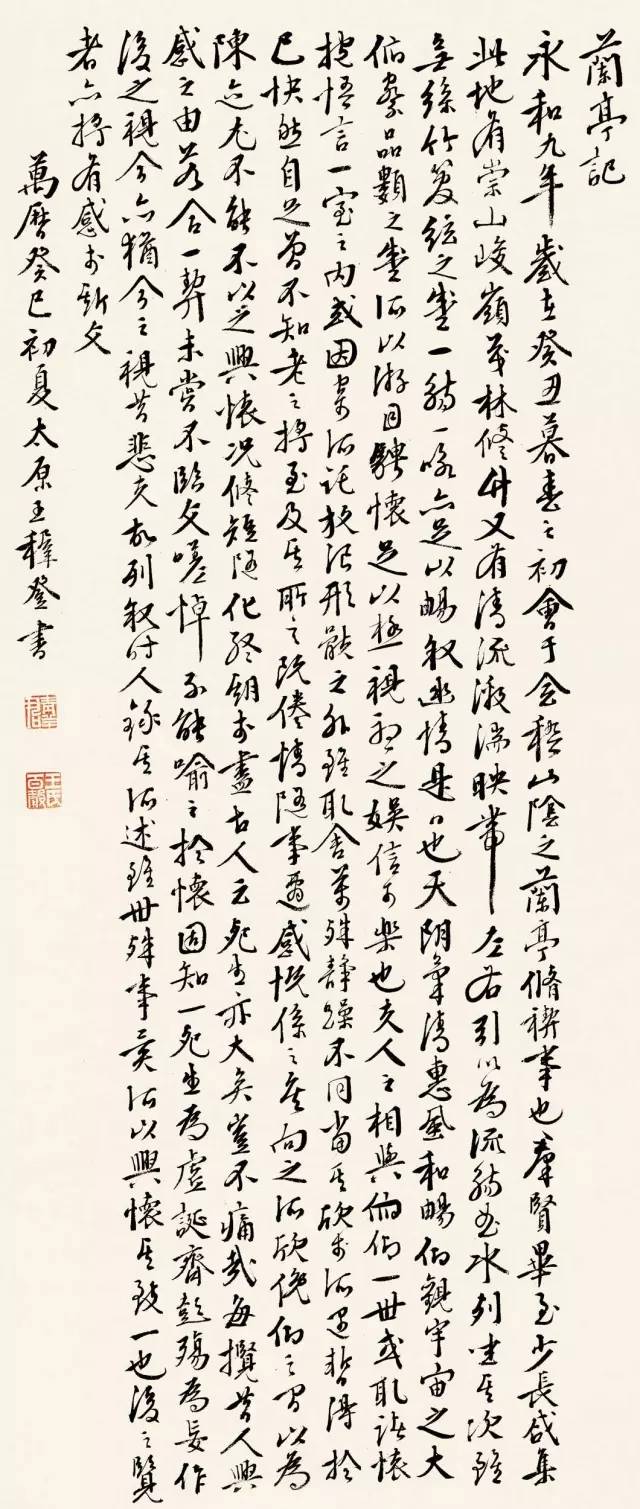 蘭亭記
永和九年歲在癸丑暮春之初會于會稽山陰之蘭亭脩禊事也羣賢畢至少長咸集
此地有崇山峻嶺茂林修竹又有清流激湍映帶左右引以為流觴曲水列坐其次雖
無絲竹筦絃之盛一觴一詠亦足以暢叙幽情是日也天朗氣清惠風和暢仰觀宇宙之大
俯察品類之盛所以游目騁懷足以極視聽之娛信可樂也夫人之相與俯仰一世或取諸懷
抱悟言一室之內或因寄所託放浪形骸之外雖取舍萬殊靜躁不同當其欣於所遇暫得於
己快然自足曾不知老之將至及其所之既倦情隨事遷感慨係之矣向之所欣俛仰之間以為
陳迹尤不能不以之興懷況修短隨化終期於盡古人云死生亦大矣豈不痛哉每攬昔人興
感之由若合一契未嘗不臨文嗟悼不能喻之於懷固知一死生為虛誕齊彭殤為妄作
後之視今亦猶今之視昔悲夫故列叙時人錄其所述雖世殊事異所以興懷其致一也後之覽
者亦將有感於斯文
萬曆癸巳初夏太原王穉登書
王氏百穀